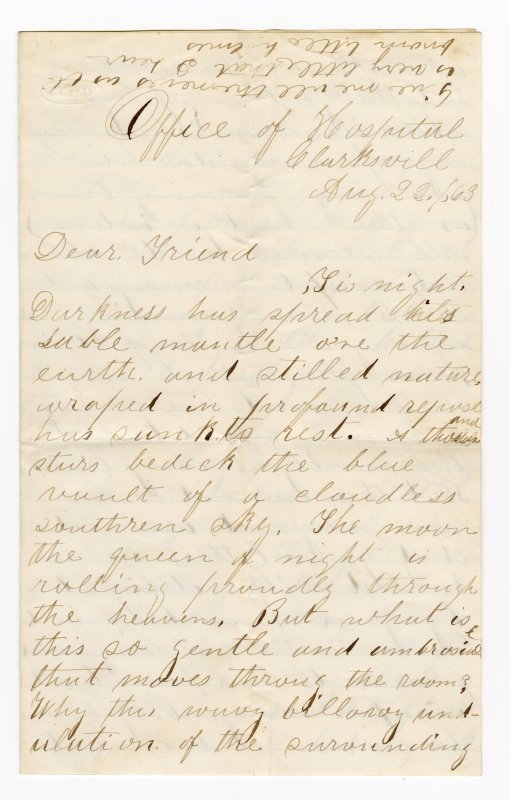 Give me all the news no it
is very little that I hear
known little times
Office of Hospital
Clarksvill
Aug. 22. /63
Dear. Friend
'T is night.
Darkness has spread its
sable mantle o're the
earth. and stilled nature
wraped in profound repose
has sunk to rest. A thousand
stars bedeck the blue
vault of a cloudless
southren sky. The moon
the queen of night is
rolling proudly through
the heavens. But what is
this so gentle and ambrosial
that moves throug the room?
Why this wavy billowy und-
ulation of the surrounding